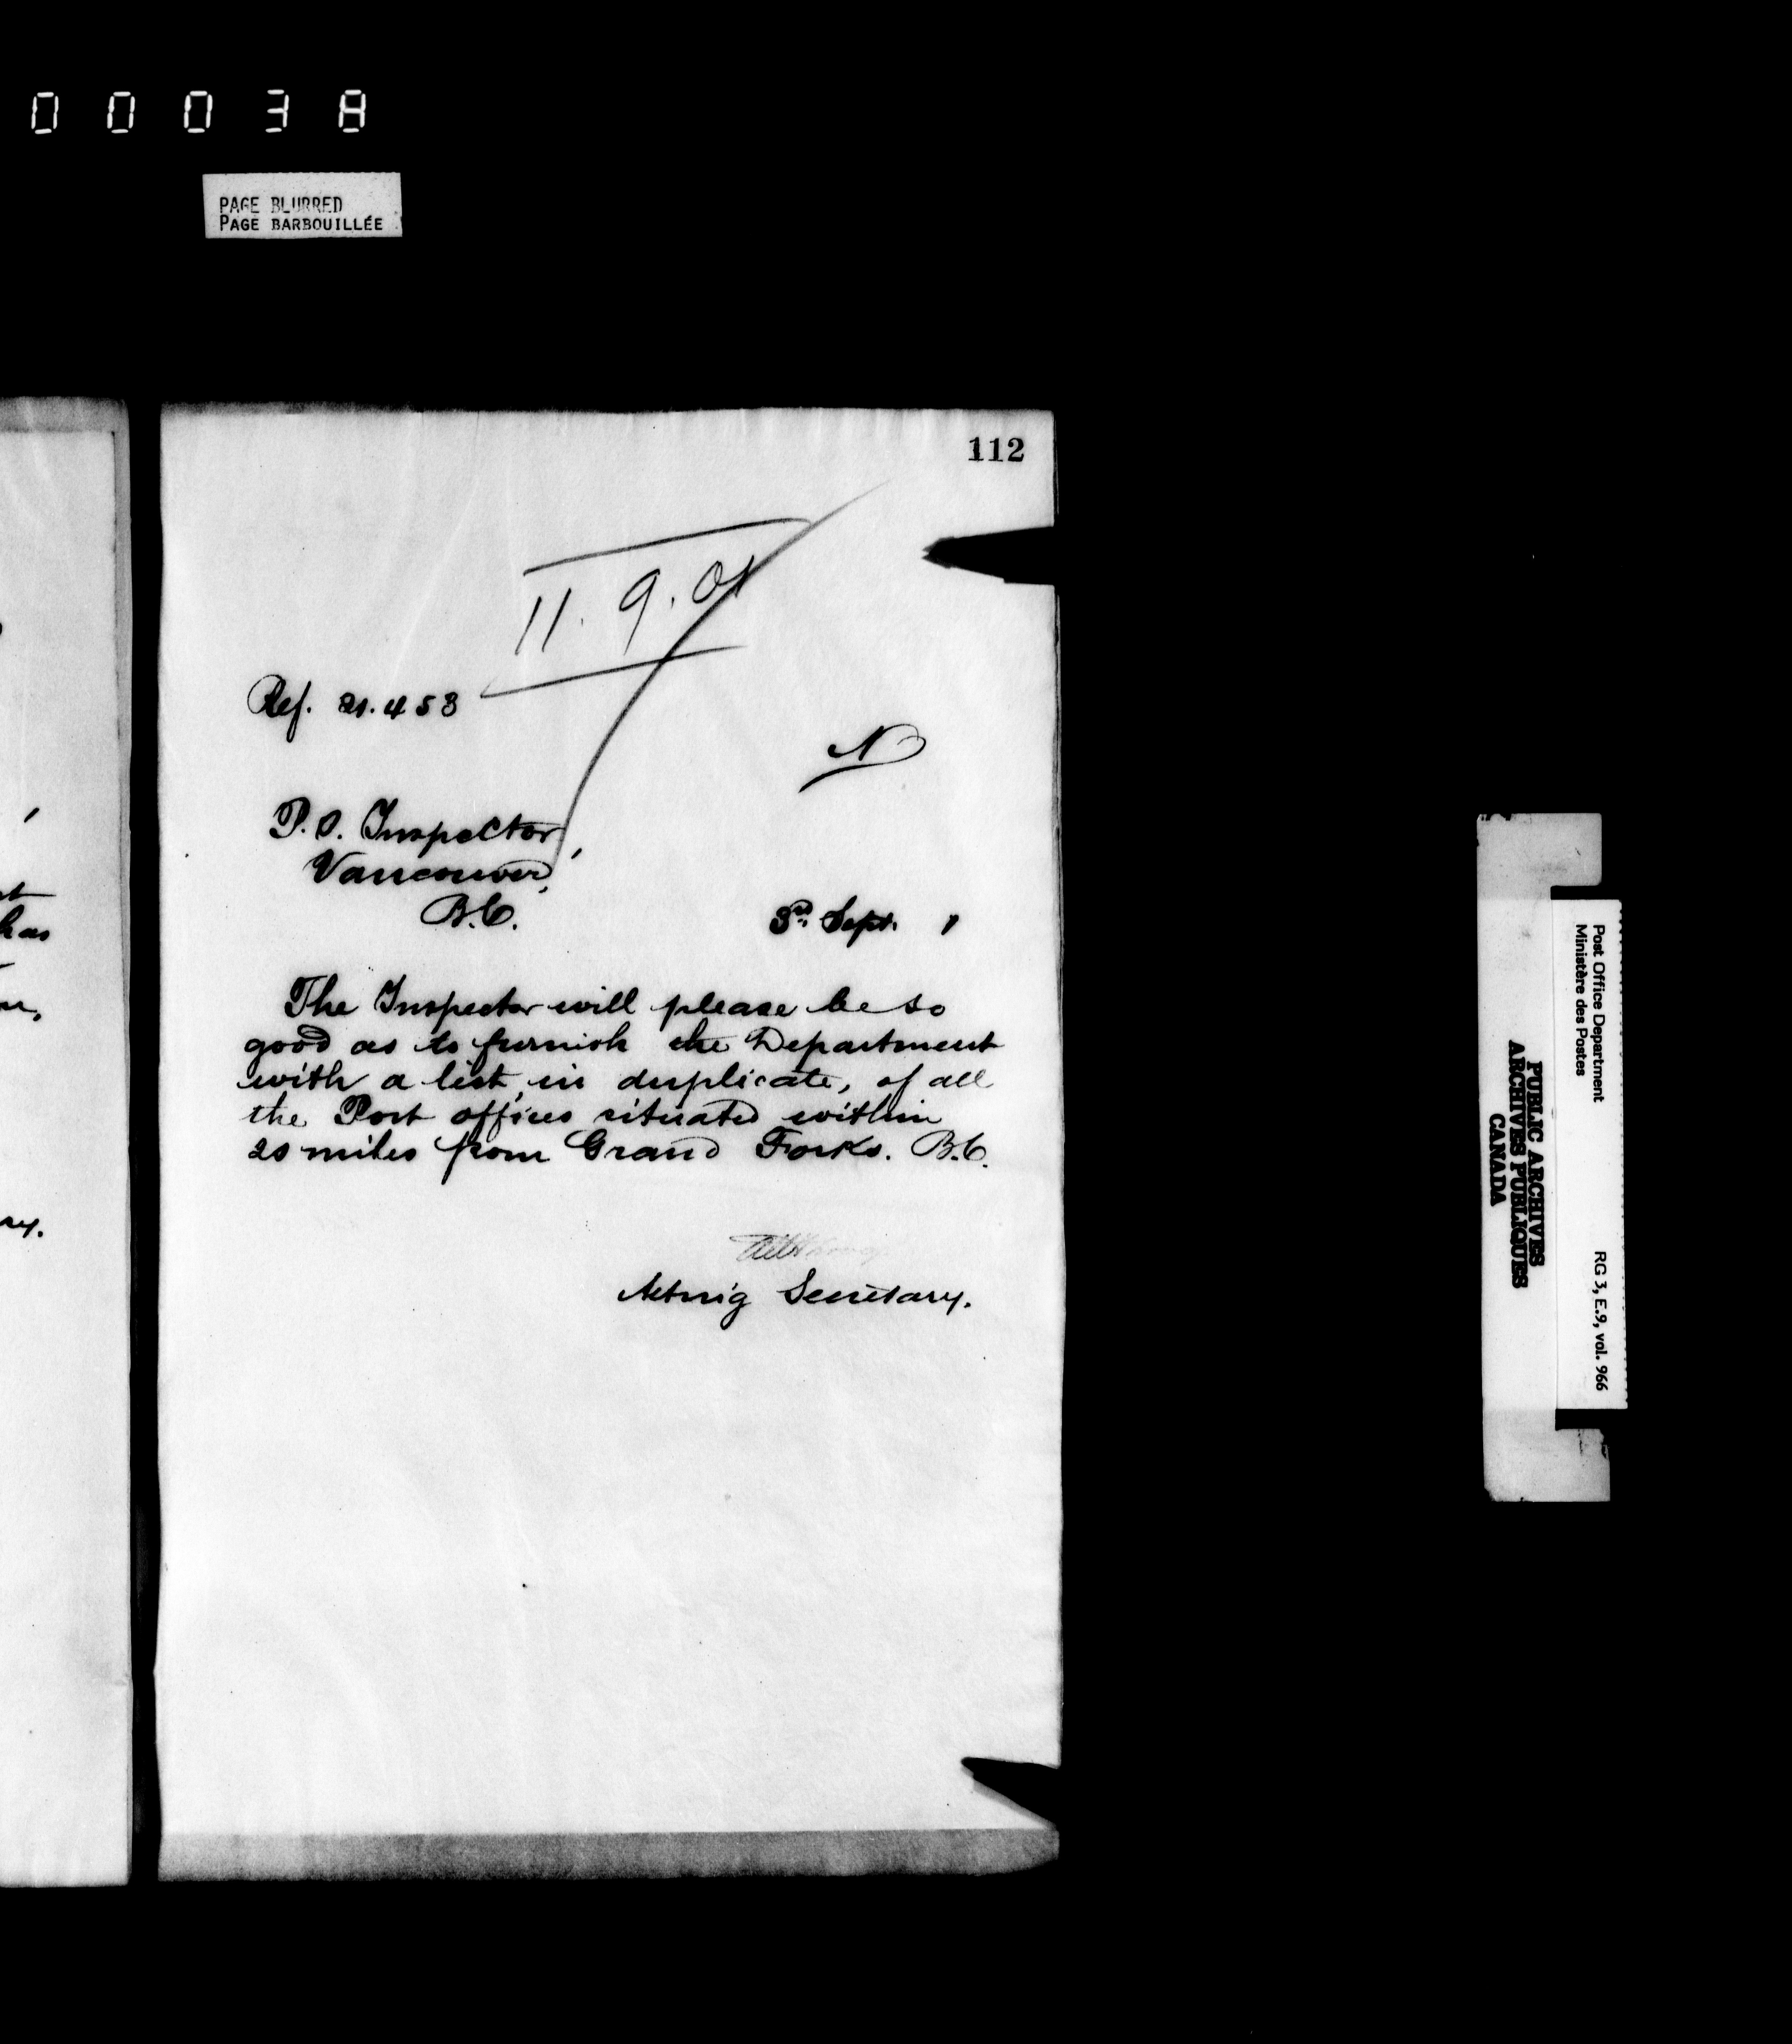 0 0 0 3 8
PAGE BLURRED
PAGE BARBOUILLÉE
112
11. 9. 01
Ref. 21.453
N
P.O. Inspector,
Vancouver,
B.C.
3rd Sept. 1
The Inspector will please be so
good as to furnish the Department
with a list, in duplicate, of all
the Post offices situated within
20 miles from Grand Forks. B.C.
Acting Secretary.
,
has
ry.
Post Office Department
Ministère des Postes
RG 3, E.9, vol. 966
PUBLIC ARCHIVES
ARCHIVES PUBLIQUES
CANADA